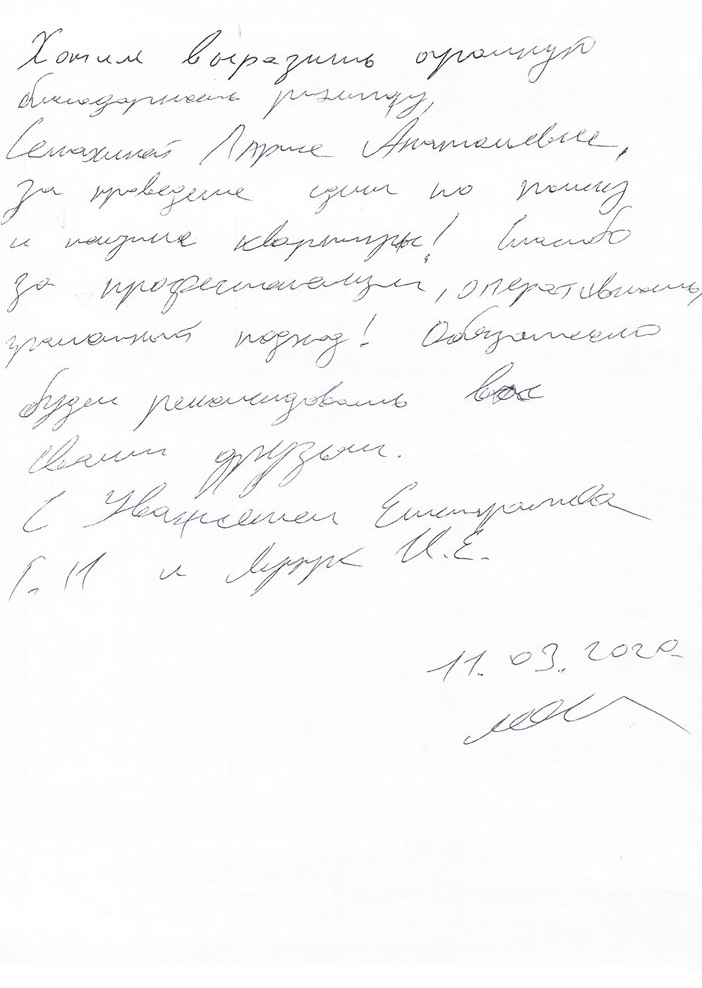 Хотим выразить огромную
благодарность риэлтору,
Семахиной Ларисе Анатольевне,
за проведение сделки по поиску
и покупке квартиры! Спасибо
за профессионализм, оперативность,
грамотный подход! Обязательно
будем рекомендовать вас
своим друзьям.
С Уважением
и И.Е.
11.03.2020